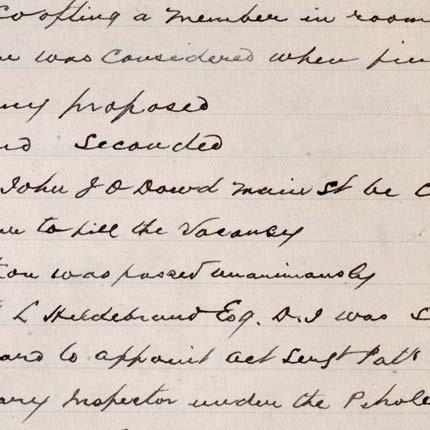 coopting a member in room
was considered when
proposed
Seconded
John J O Dowd Main St be
to fill the Vacancy
was passed unanimously
L Hildebrand Esq. D.I was
to appoint Act Sergt Patk
Inspector under the